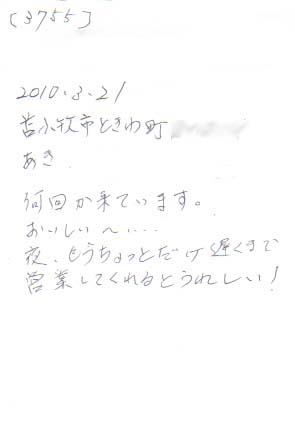 (3755)
2010.3.21
苫小牧市ときわ町
あき
何回か来ています。
おいしい〜.....
夜、もうちょっとだけ遅くまで
営業してくれるとうれしい!